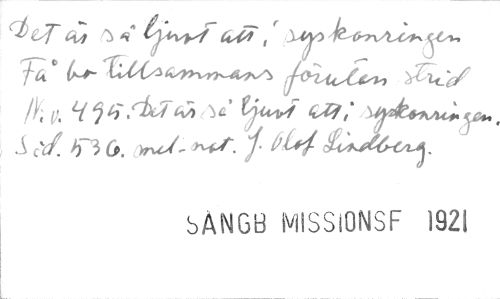 Det är så ljuvt att i syskonringen
Få bo tillsammans förutan strid
N:o. 495. Det är så ljuvt att i syskonringen.
Sid. 536. mel-not. J. Olof Lindberg.
SÅNGB MISSIONSF 1921